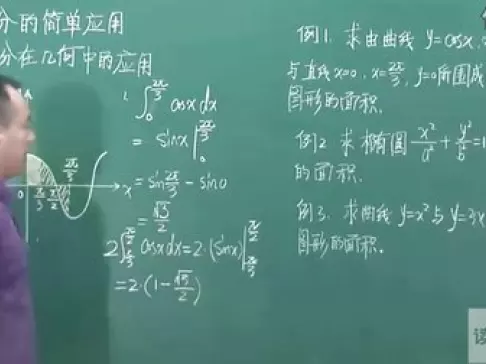 分的简单应用
分在几何中的应用
1. ∫₀^{2π/3} cosxdx
= sinx|₀^{2π/3}
= sin 2π/3 - sin0
= √3/2
2∫_{π/3}^{π/2} cosxdx = 2·(sinx)|_{π/3}^{π/2}
= 2·(1 - √3/2)
0 π/3 π/2 2π/3 x
例1. 求由曲线 y=cosx,
与直线x=0, x=2π/3, y=0所围成
图形的面积.
例2 求椭圆 x²/a² + y²/b =1
的面积.
例3. 求曲线 y=x² 与 y=3x
图形的面积.
读